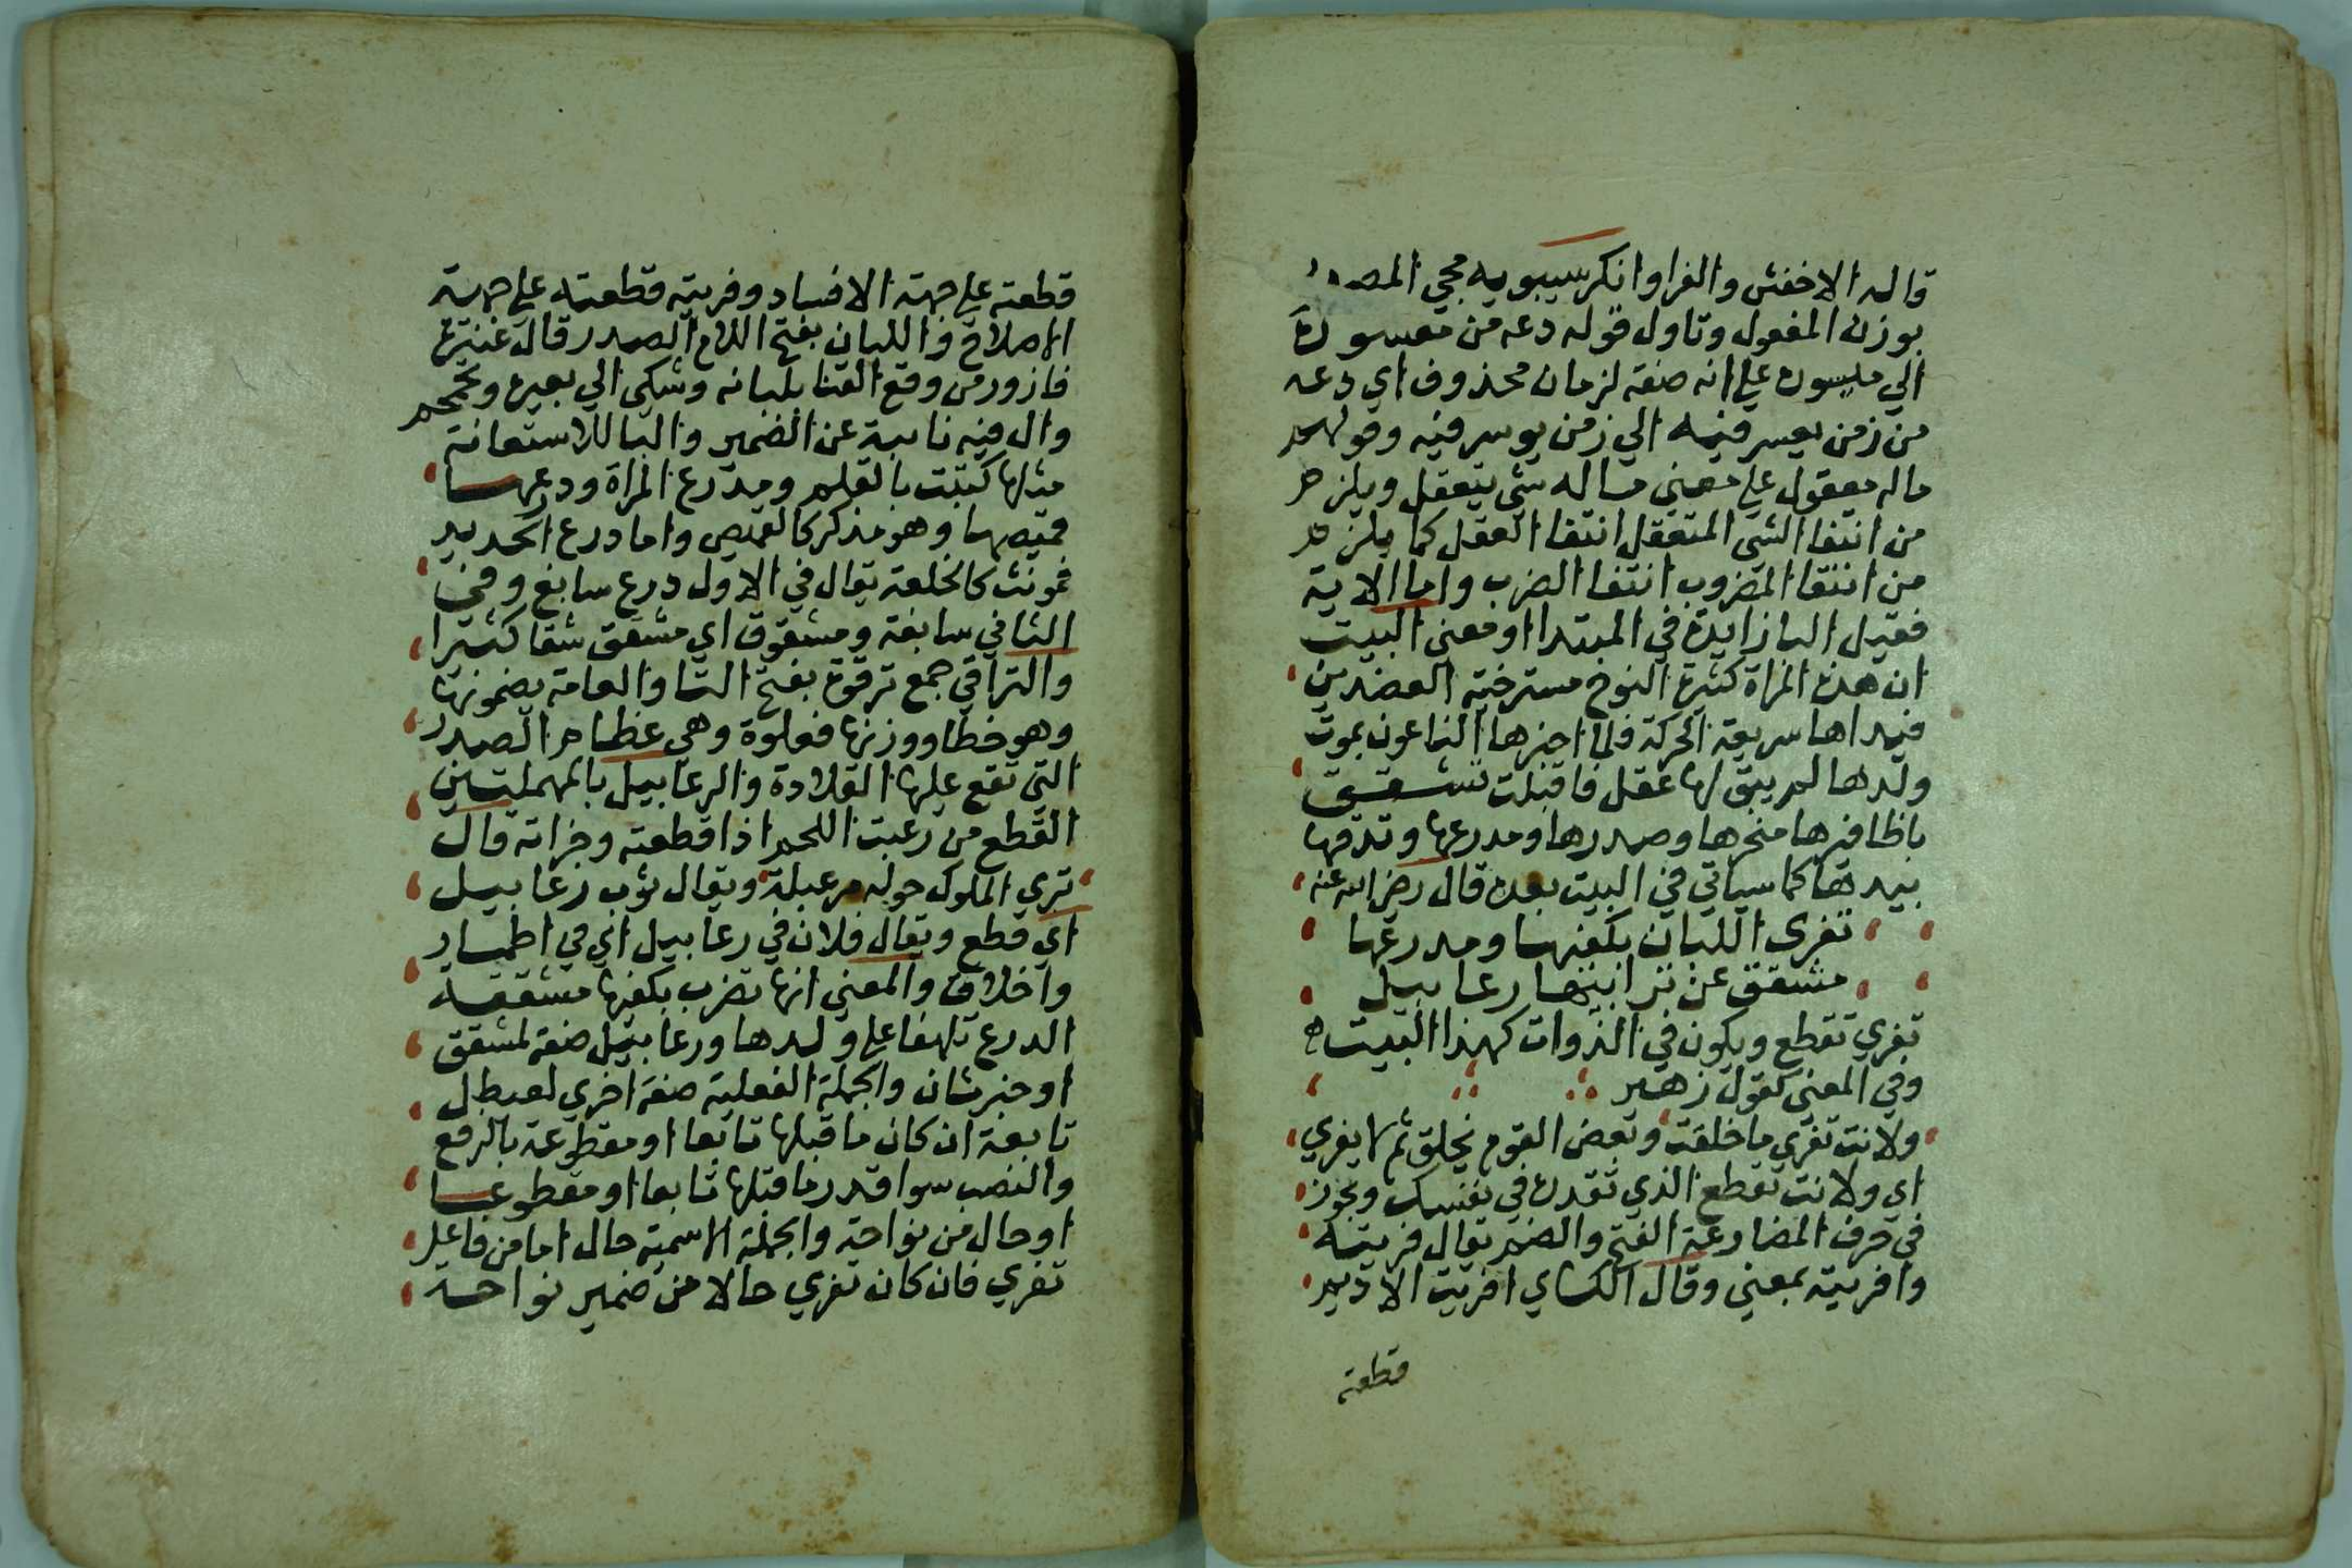 قاله الاخفش والفرا وانكر سيبويه مجي المصدر
بوزن المفعول وتاول قوله دعه من معسوره
الي ميسوره علي انه صفة لزمان محذوف اي دعه
من زمن يعسر فيه الي زمن يوسر فيه وقولهم
ماله معقول علي معني ماله شي يتعقل ويلزم
من انتفا الشي المتعقل انتفا العقل كما يلزم
من انتفا المضروب انتفا الضرب واما الاية
فقيل البا زايدة في المبتدا او معني البيت
ان هذه المراة كثيرة النوح مسترخية العضدين
فيداها سريعة الحركة فلما اخبرها الناعون بموت
ولدها لم يبق لها عقل فاقبلت تشقق
باظافرها منحرها وصدرها ومدرعها وتدقها
بيدها كما سياتي في البيت بعده قال رضي الله عنه
تفري اللبان بكفيها ومدرعها
مشقق عن تراقيها رعابيل
تفري تقطع ويكون في الذوات كهذا البيت
وفي المعني كقول زهير
ولانت تفري ما خلقت وبعض القوم يخلق ثم لا يفري
اي ولانت تقطع الذي تقدره في نفسك ويجوز
في حرف المضارعة الفتح والضم يقال فريته
وافريته بمعني وقال الكساي افريت الاديم
قطعته
قطعته علي جهة الافساد وفريته قطعته علي جهة
الاصلاح واللبان بفتح اللام الصدر قال عنترة
فازور من وقع القنا بلبانه وشكي الي بعبرة وتحمحم
وال فيه نايبة عن الضمير والبا للاستعانة
مثلها كتبت بالقلم ومدرع المراة ودرعها
قميصها وهو مذكر كالقميص واما درع الحديد
فمونث كالحلقة يقال في الاول درع سابغ وفي
الثاني سابغة ومشقوق اي مشقق شقا كثيرا
والتراقي جمع ترقوة بفتح التا والعامة يضمونها
وهو خطا ووزنها فعلوة وهي عظام الصدر
التي تقع عليها القلادة والرعابيل بالمهملتين
القطع من رعبت اللحم اذا قطعته وجزاته قال
تري الملوك حوله مرعبلة ويقال ثوب رعابيل
اي قطع ويقال فلان في رعابيل اي في اطمار
واخلاق والمعني انها تضرب بكفيها مشققة
الدرع تلهفا علي ولدها ورعابيل صفة لمشقق
او خبر ثان والجملة الفعلية صفة اخري لعيطل
تابعة ان كان ما قبلها تابعا او مقطوعة بالرفع
والنصب سوا قدر ما قبلها تابعا او مقطوعا
او حال من نواحة والجملة الاسمية حال اما من فاعل
تفري فان كان تفري حالا من ضمير نواحة